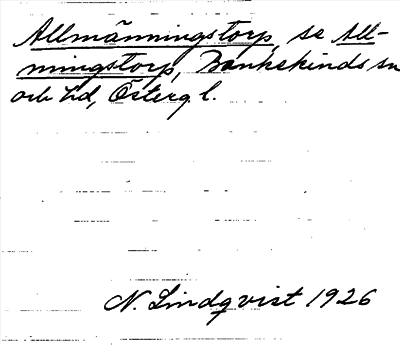 Allmänningstorp, se All-
mningstorp, Bankekinds sn
och hd, Österg l.
N. Lindqvist 1926